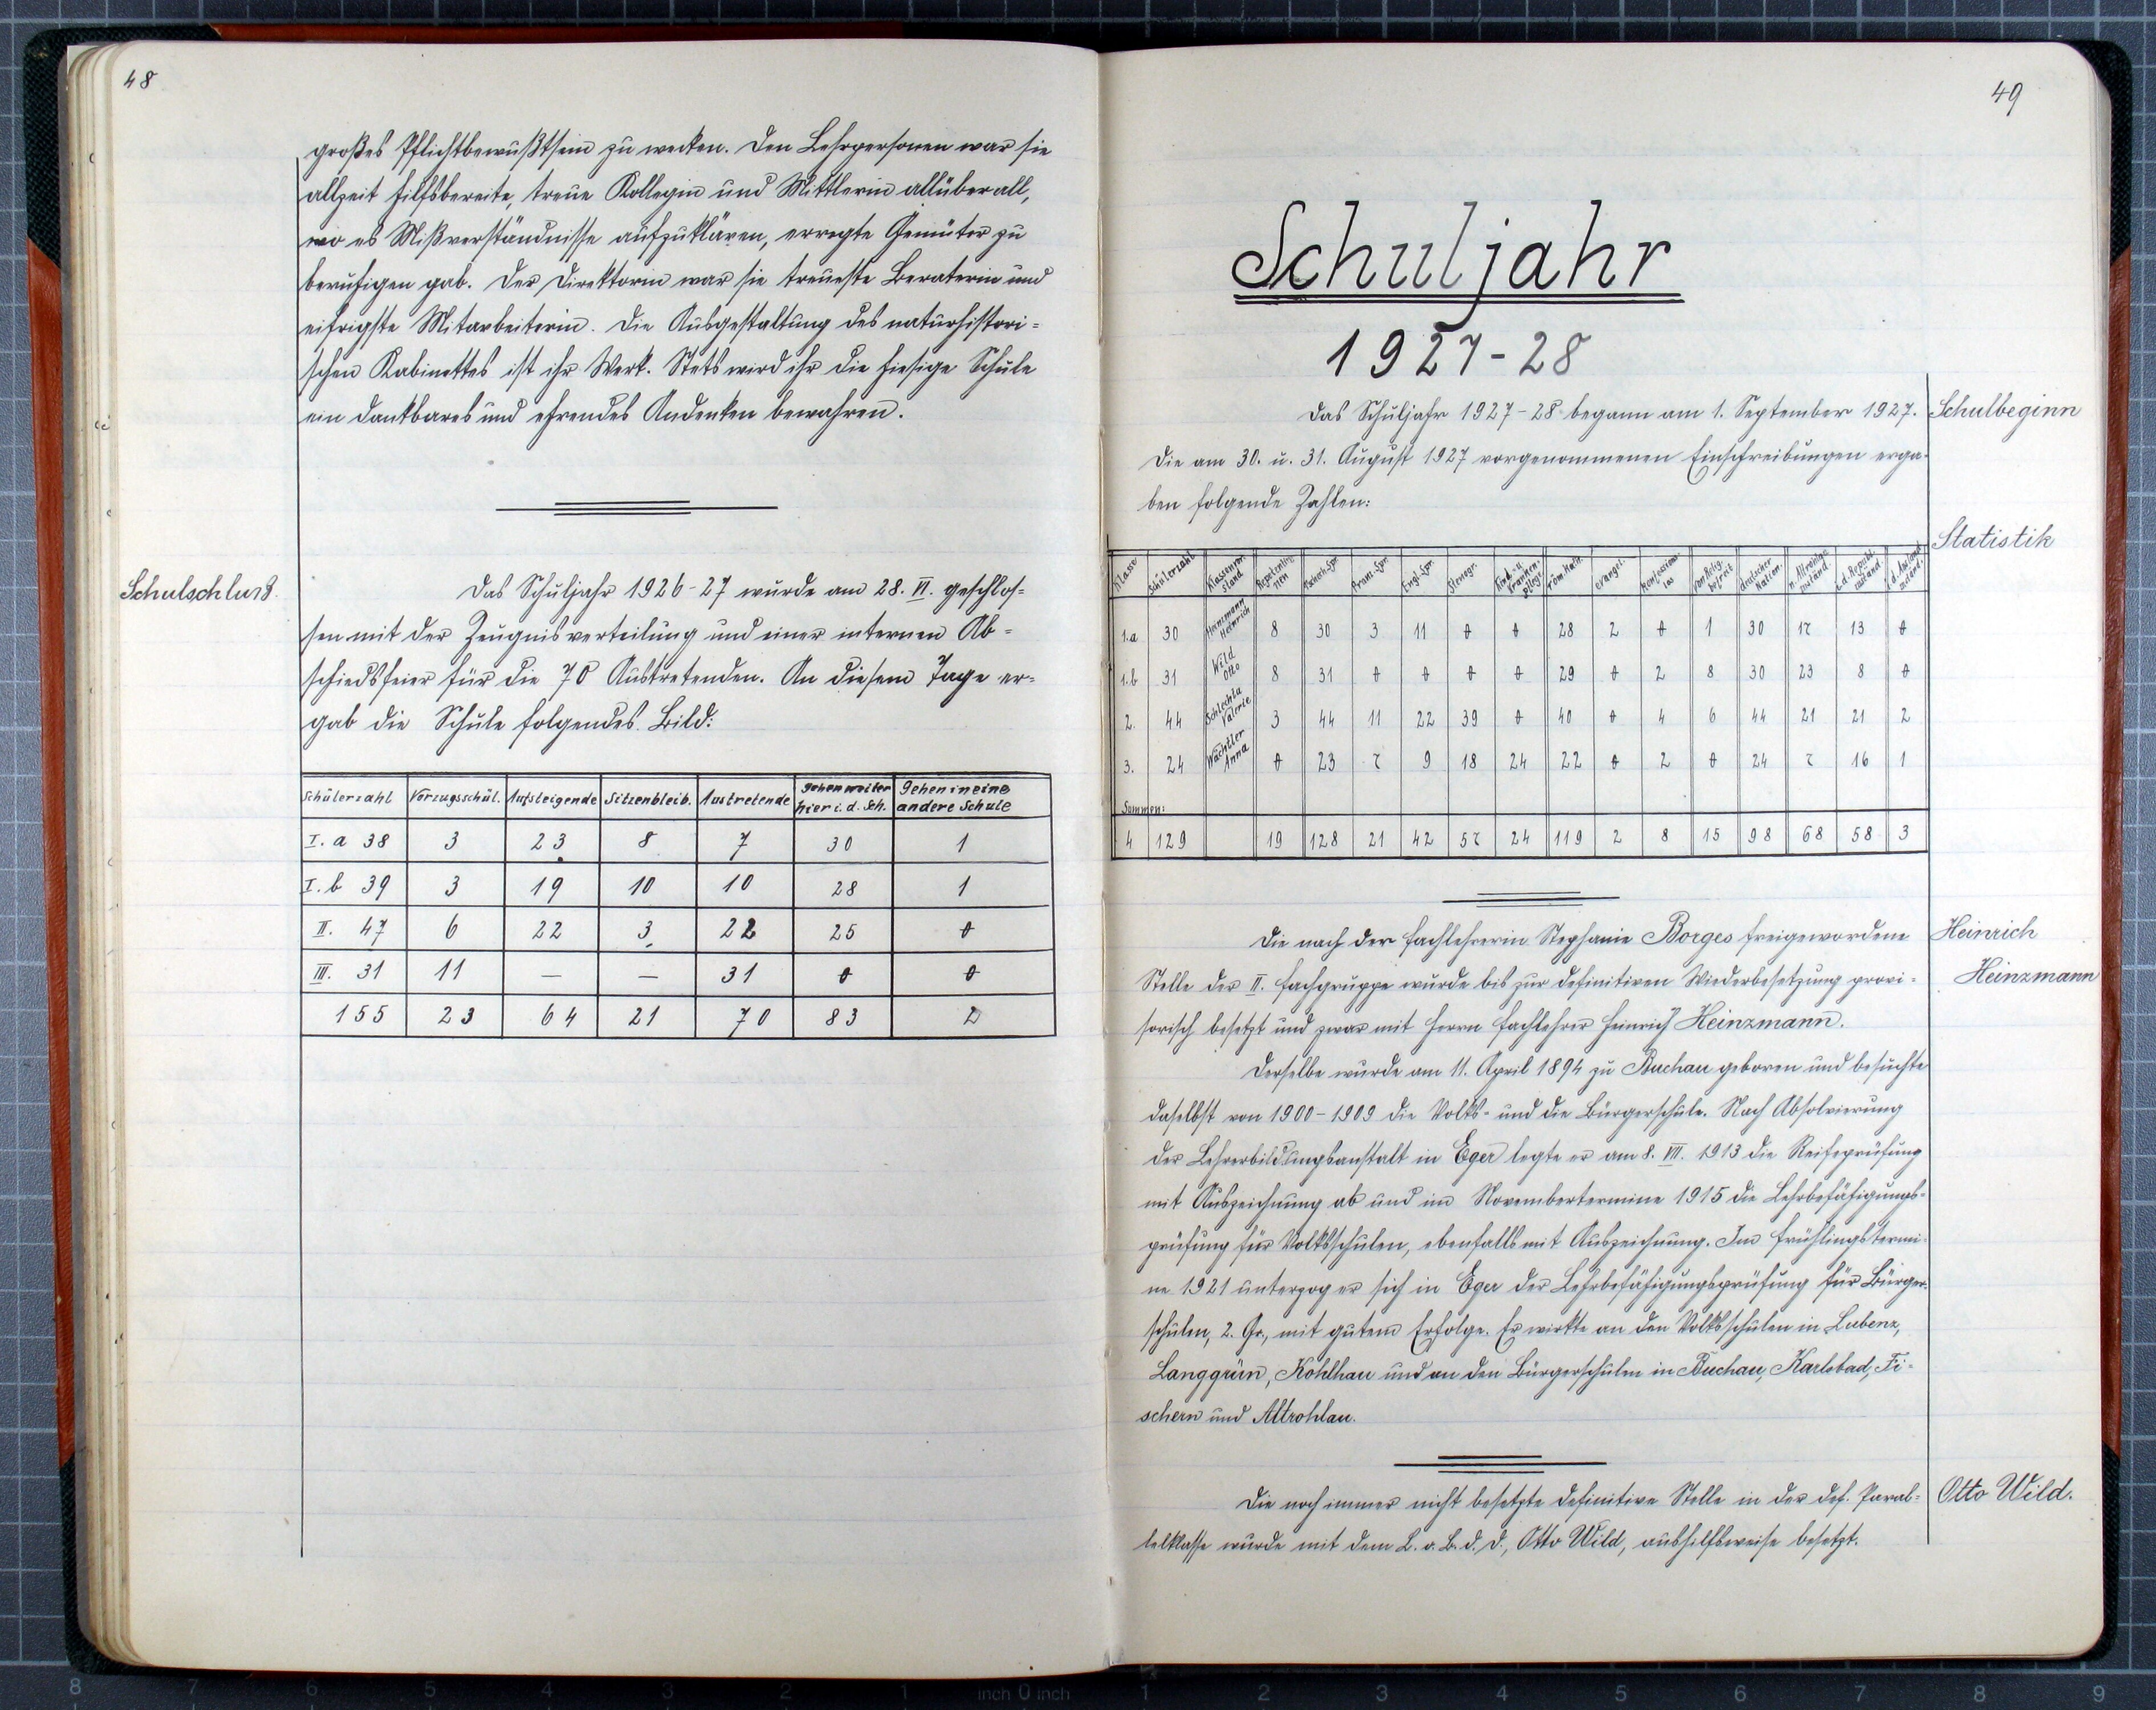 48
großes Pflichtbewußtsein zu wecken. Den Lehrpersonen war sie
allzeit hilfsbereite, treue Kollegin und Mittlerin allüberall,
wo es Mißverständnisse aufzuklären, erregte Gemüter zu
beruhigen gab. Der Direktorin war sie treueste Beraterin und
eifrigste Mitarbeiterin. Die Ausgestaltung des naturhistori=
schen Kabinettes ist ihr Werk. Stets wird ihr die hiesige Schule
ein dankbares und ehrendes Andenken bewahren.
Schulschluss.
Das Schuljahr 1926-27 wurde am 28. VI. geschlos=
sen mit der Zeugnisverteilung und einer internen Ab=
schiedsfeier für die 70 Austretenden. An diesem Tage er=
gab die Schule folgendes Bild:
Schülerzahl Vorzugsschül. Aufsteigende Sitzenbleib. Austretende Gehen weiter hier i. d. Sch. Gehen in eine andere Schule
I. a 38 3 23 8 7 30 1
I. b 39 3 19 10 10 28 1
II. 47 6 22 3 22 25 0
III. 31 11 — — 31 0 0
155 23 64 21 70 83 2
49
Schuljahr
1927-28
Das Schuljahr 1927-28 begann am 1. September 1927.
Schulbeginn
Die am 30. u. 31. August 1927 vorgenommenen Einschreibungen erga-
ben folgende Zahlen:
Statistik
Klasse Schülerzahl Klassenvorstand Repetentinnen Tschech. Spr. Franz. Spr. Engl. Spr. Stenogr. Kind- u. Krankenpflege röm. kath. evangel. Konfessionslos vom Relig. befreit deutscher Nation.
1.a 30 Heinzmann Heinrich 8 30 3 11 0 0 28 2 0 1 30 17 13 0
1.b 31 Wild Otto 8 31 0 0 0 0 29 0 2 8 30 23 8 0
2. 44 Schlechla Valerie 3 44 11 22 39 0 40 0 4 6 44 21 21 2
3. 24 Wächtler Anna 0 23 7 9 18 24 22 0 2 0 24 7 16 1
Summen:
4 129 19 128 21 42 57 24 119 2 8 15 98 68 58 3
Die nach der Fachlehrerin Stephanie Borges freigewordene
Heinrich
Heinzmann
Stelle der II. Fachgruppe wurde bis zur definitiven Wiederbesetzung provi=
sorisch besetzt und zwar mit Herrn Fachlehrer Heinrich Heinzmann.
Derselbe wurde am 11. April 1894 zu Buchau geboren und besuchte
daselbst von 1900-1909 die Volks- und die Bürgerschule. Nach Absolvierung
der Lehrerbildungsanstalt in Eger legte er am 8. VII. 1913 die Reifeprüfung
mit Auszeichnung ab und im Novembertermine 1915 die Lehrbefähigungs-
prüfung für Volksschulen, ebenfalls mit Auszeichnung. Im Frühlingstermi-
ne 1921 unterzog er sich in Eger der Lehrbefähigungsprüfung für Bürger-
schulen, 2. Gr., mit gutem Erfolge. Er wirkte an den Volksschulen in Lubenz,
Langgrün, Kohlhau und an den Bürgerschulen in Buchau, Karlsbad, Fi=
schern und Altrohlau.
Die noch immer nicht besetzte definitive Stelle in der def. Paral=
Otto Wild.
lelklasse wurde mit dem L. a. B. d. D., Otto Wild, aushilfsweise besetzt.